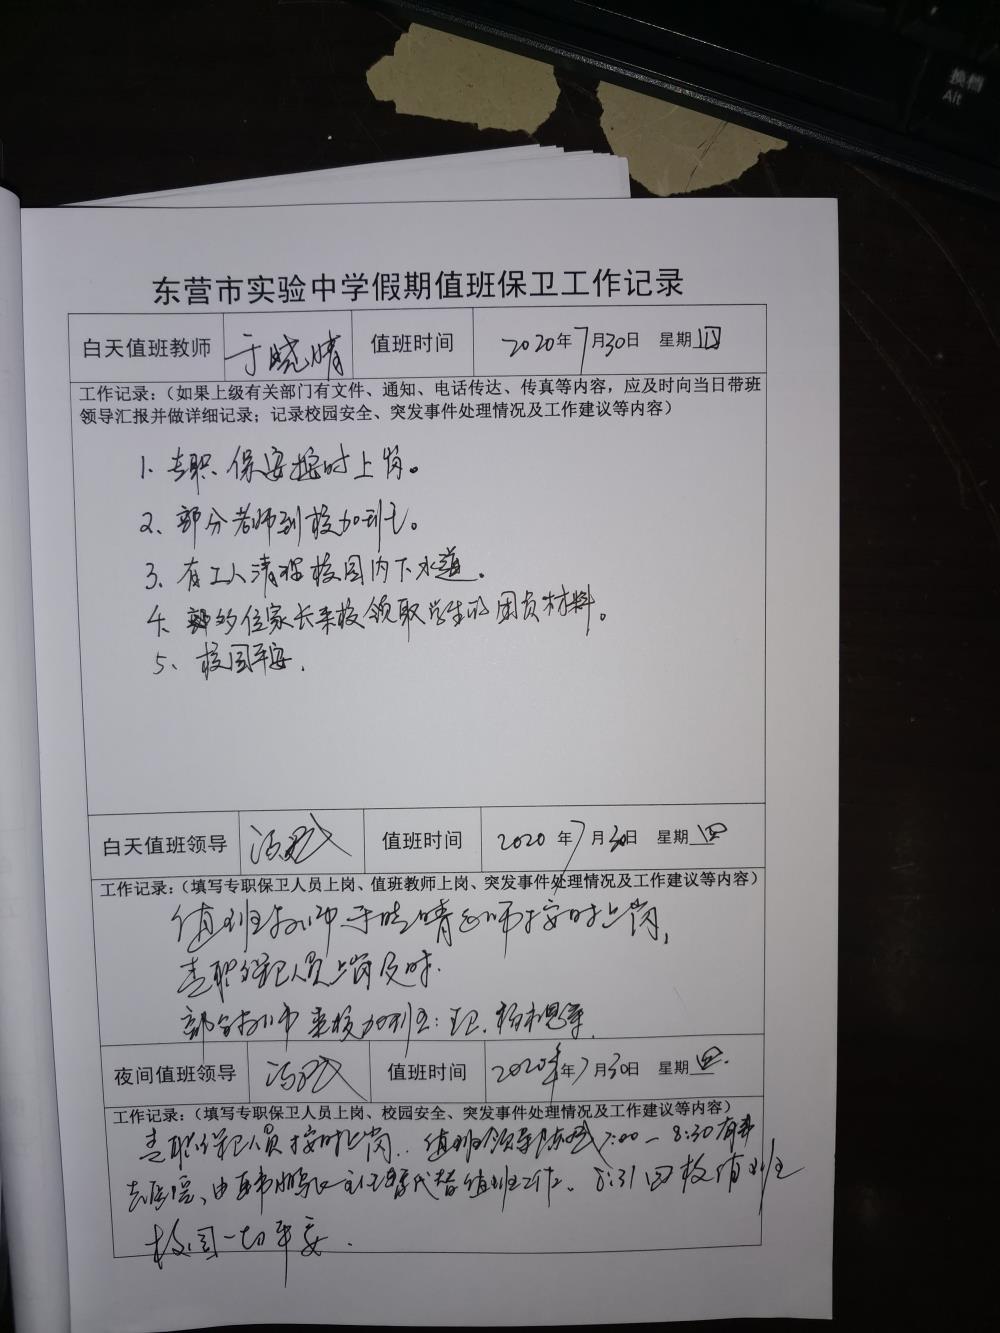 换档
Alt
东营市实验中学假期值班保卫工作记录
白天值班教师 于晓晴 值班时间 2020年7月30日 星期四
工作记录：（如果上级有关部门有文件、通知、电话传达、传真等内容，应及时向当日带班
领导汇报并做详细记录；记录校园安全、突发事件处理情况及工作建议等内容）
1. 专职、保安按时上岗。
2、部分老师到校加班。
3、有工人清理校园内下水道。
4、的位家长来校领取学生的团员材料。
5、校园平安.
白天值班领导 值班时间 2020年7月30日 星期四
工作记录：（填写专职保卫人员上岗、值班教师上岗、突发事件处理情况及工作建议等内容）
值班教师于晓晴老师按时上岗,
专职保卫人员上岗及时.
部分教师来校加班：
夜间值班领导 值班时间 2020年7月30日 星期四.
工作记录：（填写专职保卫人员上岗、校园安全、突发事件处理情况及工作建议等内容）
专职保卫人员按时上岗. 值班领导 7:00-8:30有事
去医院、由 主任代替值班工作、8:31回校值班
校园一切平安.